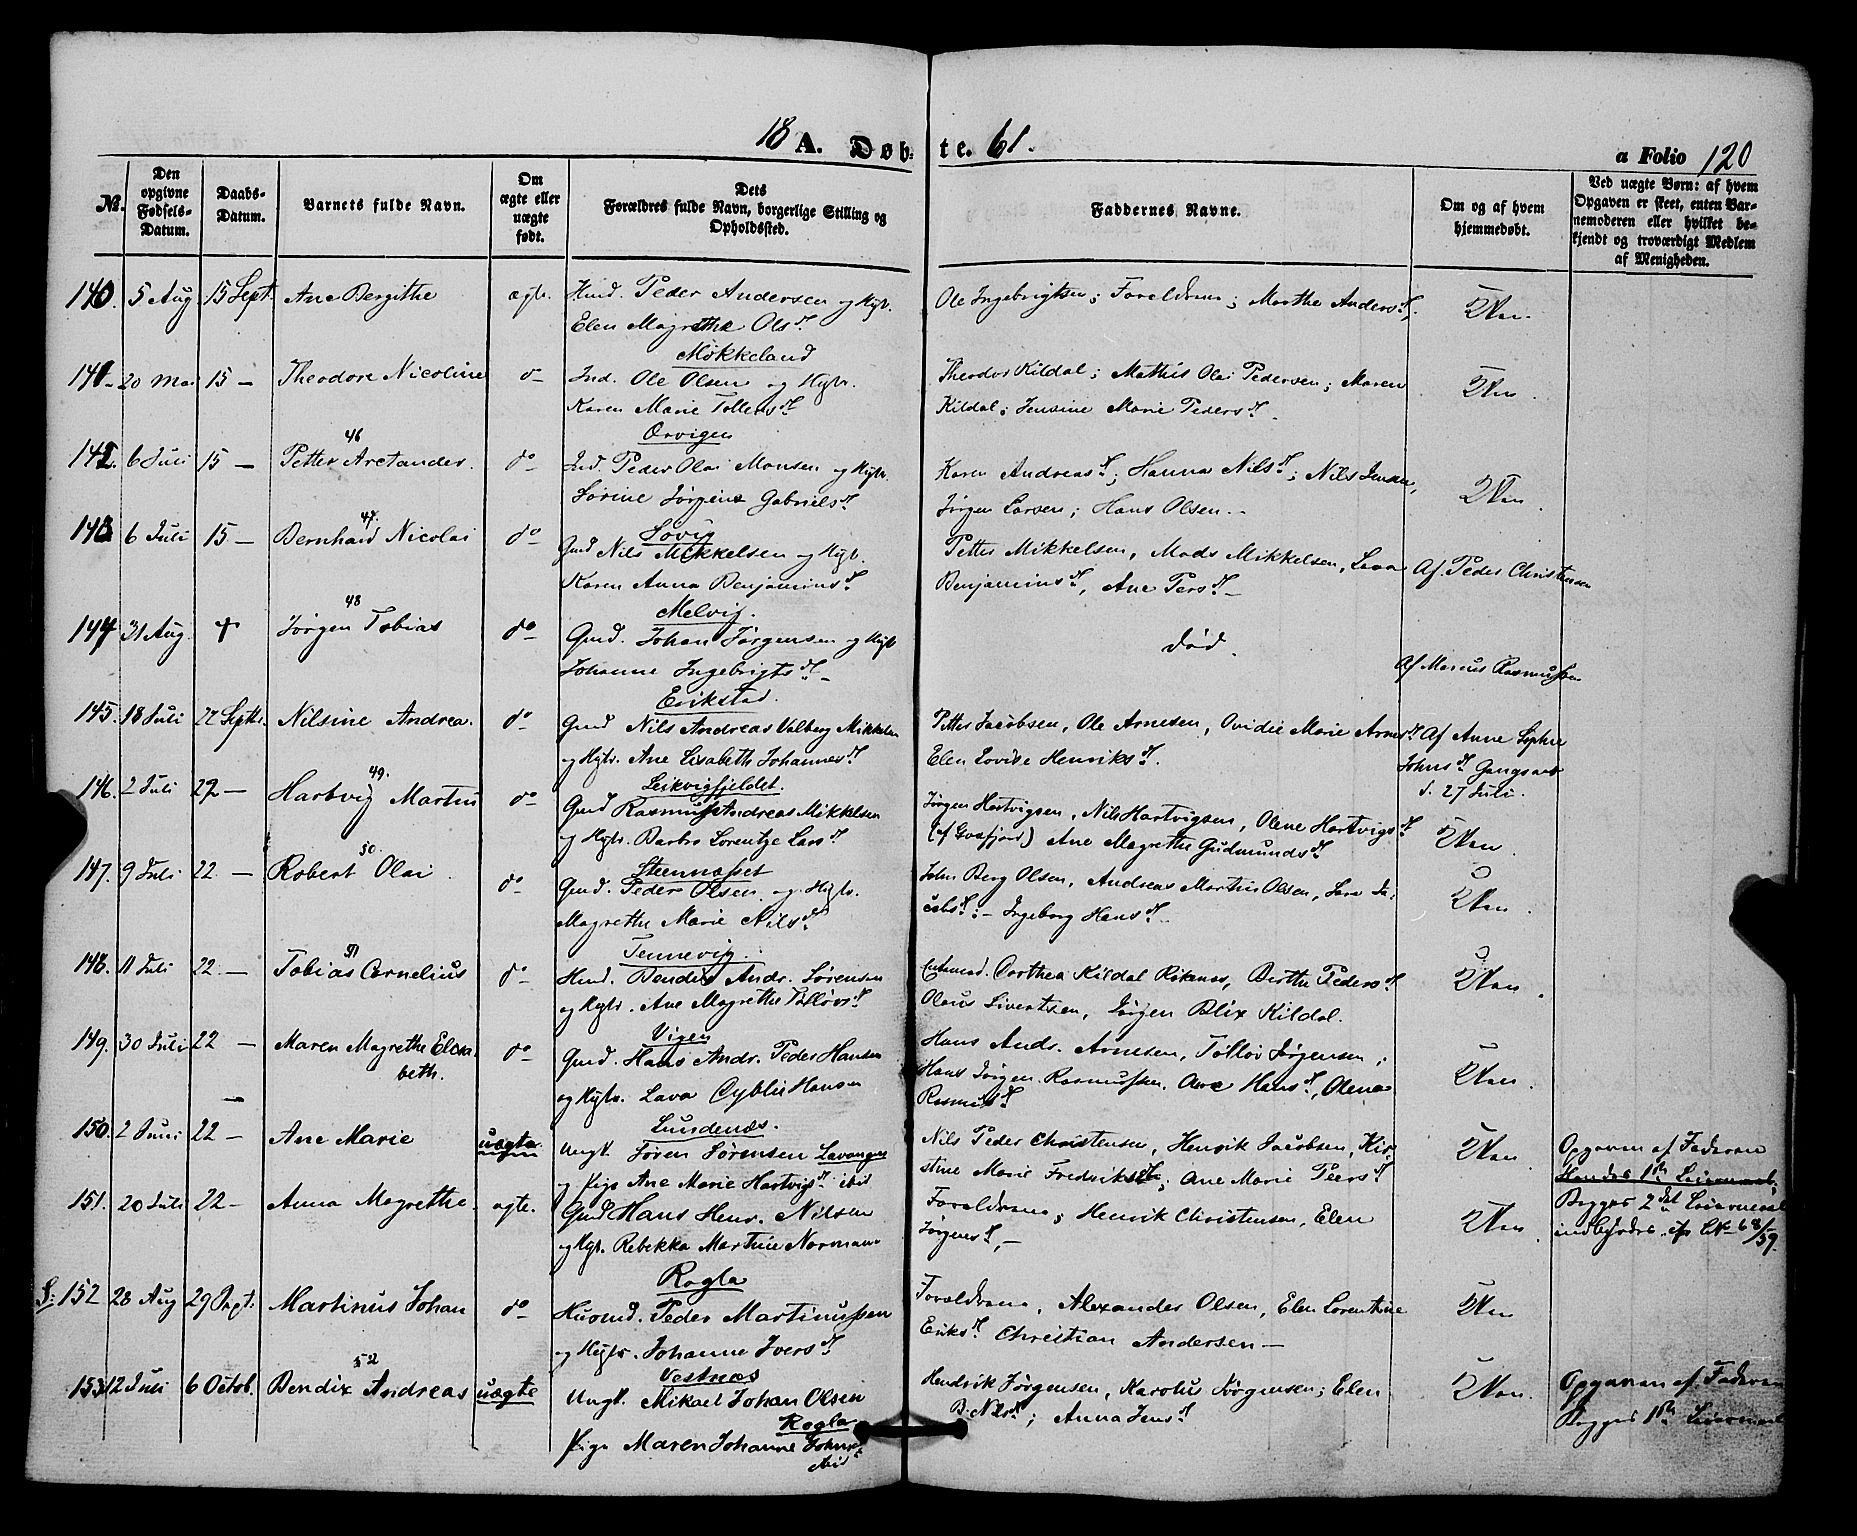 18 A. Døb-te. 61.
a Folio 120
No.
Den opgivne Fødsels-Datum.
Daabs-Datum.
Barnets fulde Navn.
Om ægte eller uægte født.
Dets Forældres fulde Navn, borgerlige Stilling og Opholdssted.
Faddernes Navne.
Om og af hvem hjemmedøbt.
Ved uægte Børn: af hvem Opgaven er skeet, enten Barnemoderen eller hvilket bekjendt og troværdigt Medlem af Menigheden.
140. 5 Aug. 15 Sept. Ane Bergithe ægte. Huud. Peder Andersen og Hstr. Ole Ingebrigtsen; Forældrene; Marthe Andersd.
Elen Magrethe Olsd.
Møkkeland
141 20 Mai 15 Theodore Nicoline Ind. Ole Olsen og Hstr. Theodor Kildal; Mathis Olai Pedersen; Maren
Karen Marie Tollefsd. Kildal; Jensine Marie Pedersd.
Örvigen
46
142. 6 Juli 15 Petter Arctander. do Ind. Peder Olai Monsen og Hstr. Karen Andreasd.; Hanna Nilsd.; Nils Jensen,
Sørine Jørgine Gabrielsd. Jørgen Larsen; Hans Olsen.
Sövig
47.
143 6 Juli 15 Bernhard Nicolai do Gmd Nils Mikkelsen og Hstr. Petter Mikkelsen, Mads Mikkelsen, Lava Af Peder Christensen
Karen Anna Benjaminsd. Benjaminsd., Ane Persd.
Melvig.
48
144 31 Aug. + Jørgen Tobias do Gmd. Johan Jørgensen og Hstr død. Af Marcus Rasmussen
Johanne Ingebrigtsd.
Erikstad.
145. 18 Juli 22 Septbr. Nilsine Andrea. do Gmd Nils Andreas Valberg Mikkelsen Petter Jacobsen, Ole Arnesen, Ovidie Marie Arnesd. Af Anne Sophie
og Hstr. Ane Lisabeth Johannesd. Elen Lovise Henriksd. Johnsd. Gangsaas
d. 27 Juli.
Leikvigfjeldet.
49.
146. 2 Juli 22 Hartvig Martin do Gmd Rasmus Andreas Mikkelsen Jørgen Hartvigsen, Nils Hartvigsen, Olene Hartvigsd.
og Hstr. Barbro Lorentze Larsd. (af Gvafjord) Ane Magrethe Gudmundsd.
Steennæsset
50.
147. 9 Juli 22 Robert Olai do Gmd. Peder Olsen og Hstr. John Berg Olsen, Andreas Martin Olsen, Sara Ja-
Magrethe Marie Nilsd. cobsd.; Ingeborg Hansd.
Tennevig.
51
148. 11 Juli 22 Tobias Cornelius do Huud. Bendix Andr. Sørensen Dorthea Kildal Röknes, Berthe Pedersd.
og Hstr. Ane Magrethe Tollevsd. Olaus Sivertsen, Jørgen Blix Kildal.
Vigen
149. 30 Juli 22 Maren Magrethe Elisa- do Gmd. Hans Andr. Peder Hansen Hans Andr. Arnesen, Tollev Jørgensen;
beth. og Hstr. Lava Hansen Hans Jørgen Rasmussen, Ane Hansd., Olena
Rasmusd.
Lundenæs.
150. 2 Juni 22 Ane Marie uægte Ungk. Søren Sørensen Lavangen Nils Peder Christensen, Henrik Jacobsen, Kir- Opgaven af Faderen
og Pige Ane Marie Hartvigsd. ibid stine Marie Fredriksd.; Ane Marie Peersd. Hendes 1ste Leiermaal,
151. 20 Juli 22 Anna Magrethe ægte. Gmd Hans Henr. Nilsen Forældrene; Henrik Christensen, Elen Begges 2det Leiermaal
og Hgt. Rebekka Martine Normann Jørgensd. indbyrdes. cfr LK 68/59.
Rogla
S: 152 28 Aug 29 Sept. Martinus Johan do Husmd. Peder Martinussen Forældrene, Alexander Olsen, Elen Lorentine
og Hstr. Johanne Iversd. Eriksd. Christian Andersen
Vestnæs
52
153 12 Juli 6 Octob. Bendix Andreas uægte Ungk. Mikael Johan Olsen Hendrik Jørgensen, Karolus Jørgensen; Elen Opgaven af Faderen
Rogla B. Nilsd.; Anna Jensd. Begges 1ste Leiermaal
Pige Maren Johanne Johnsd.
ibid